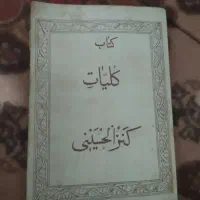 کتاب
کلیاتِ
کنز الحسینی